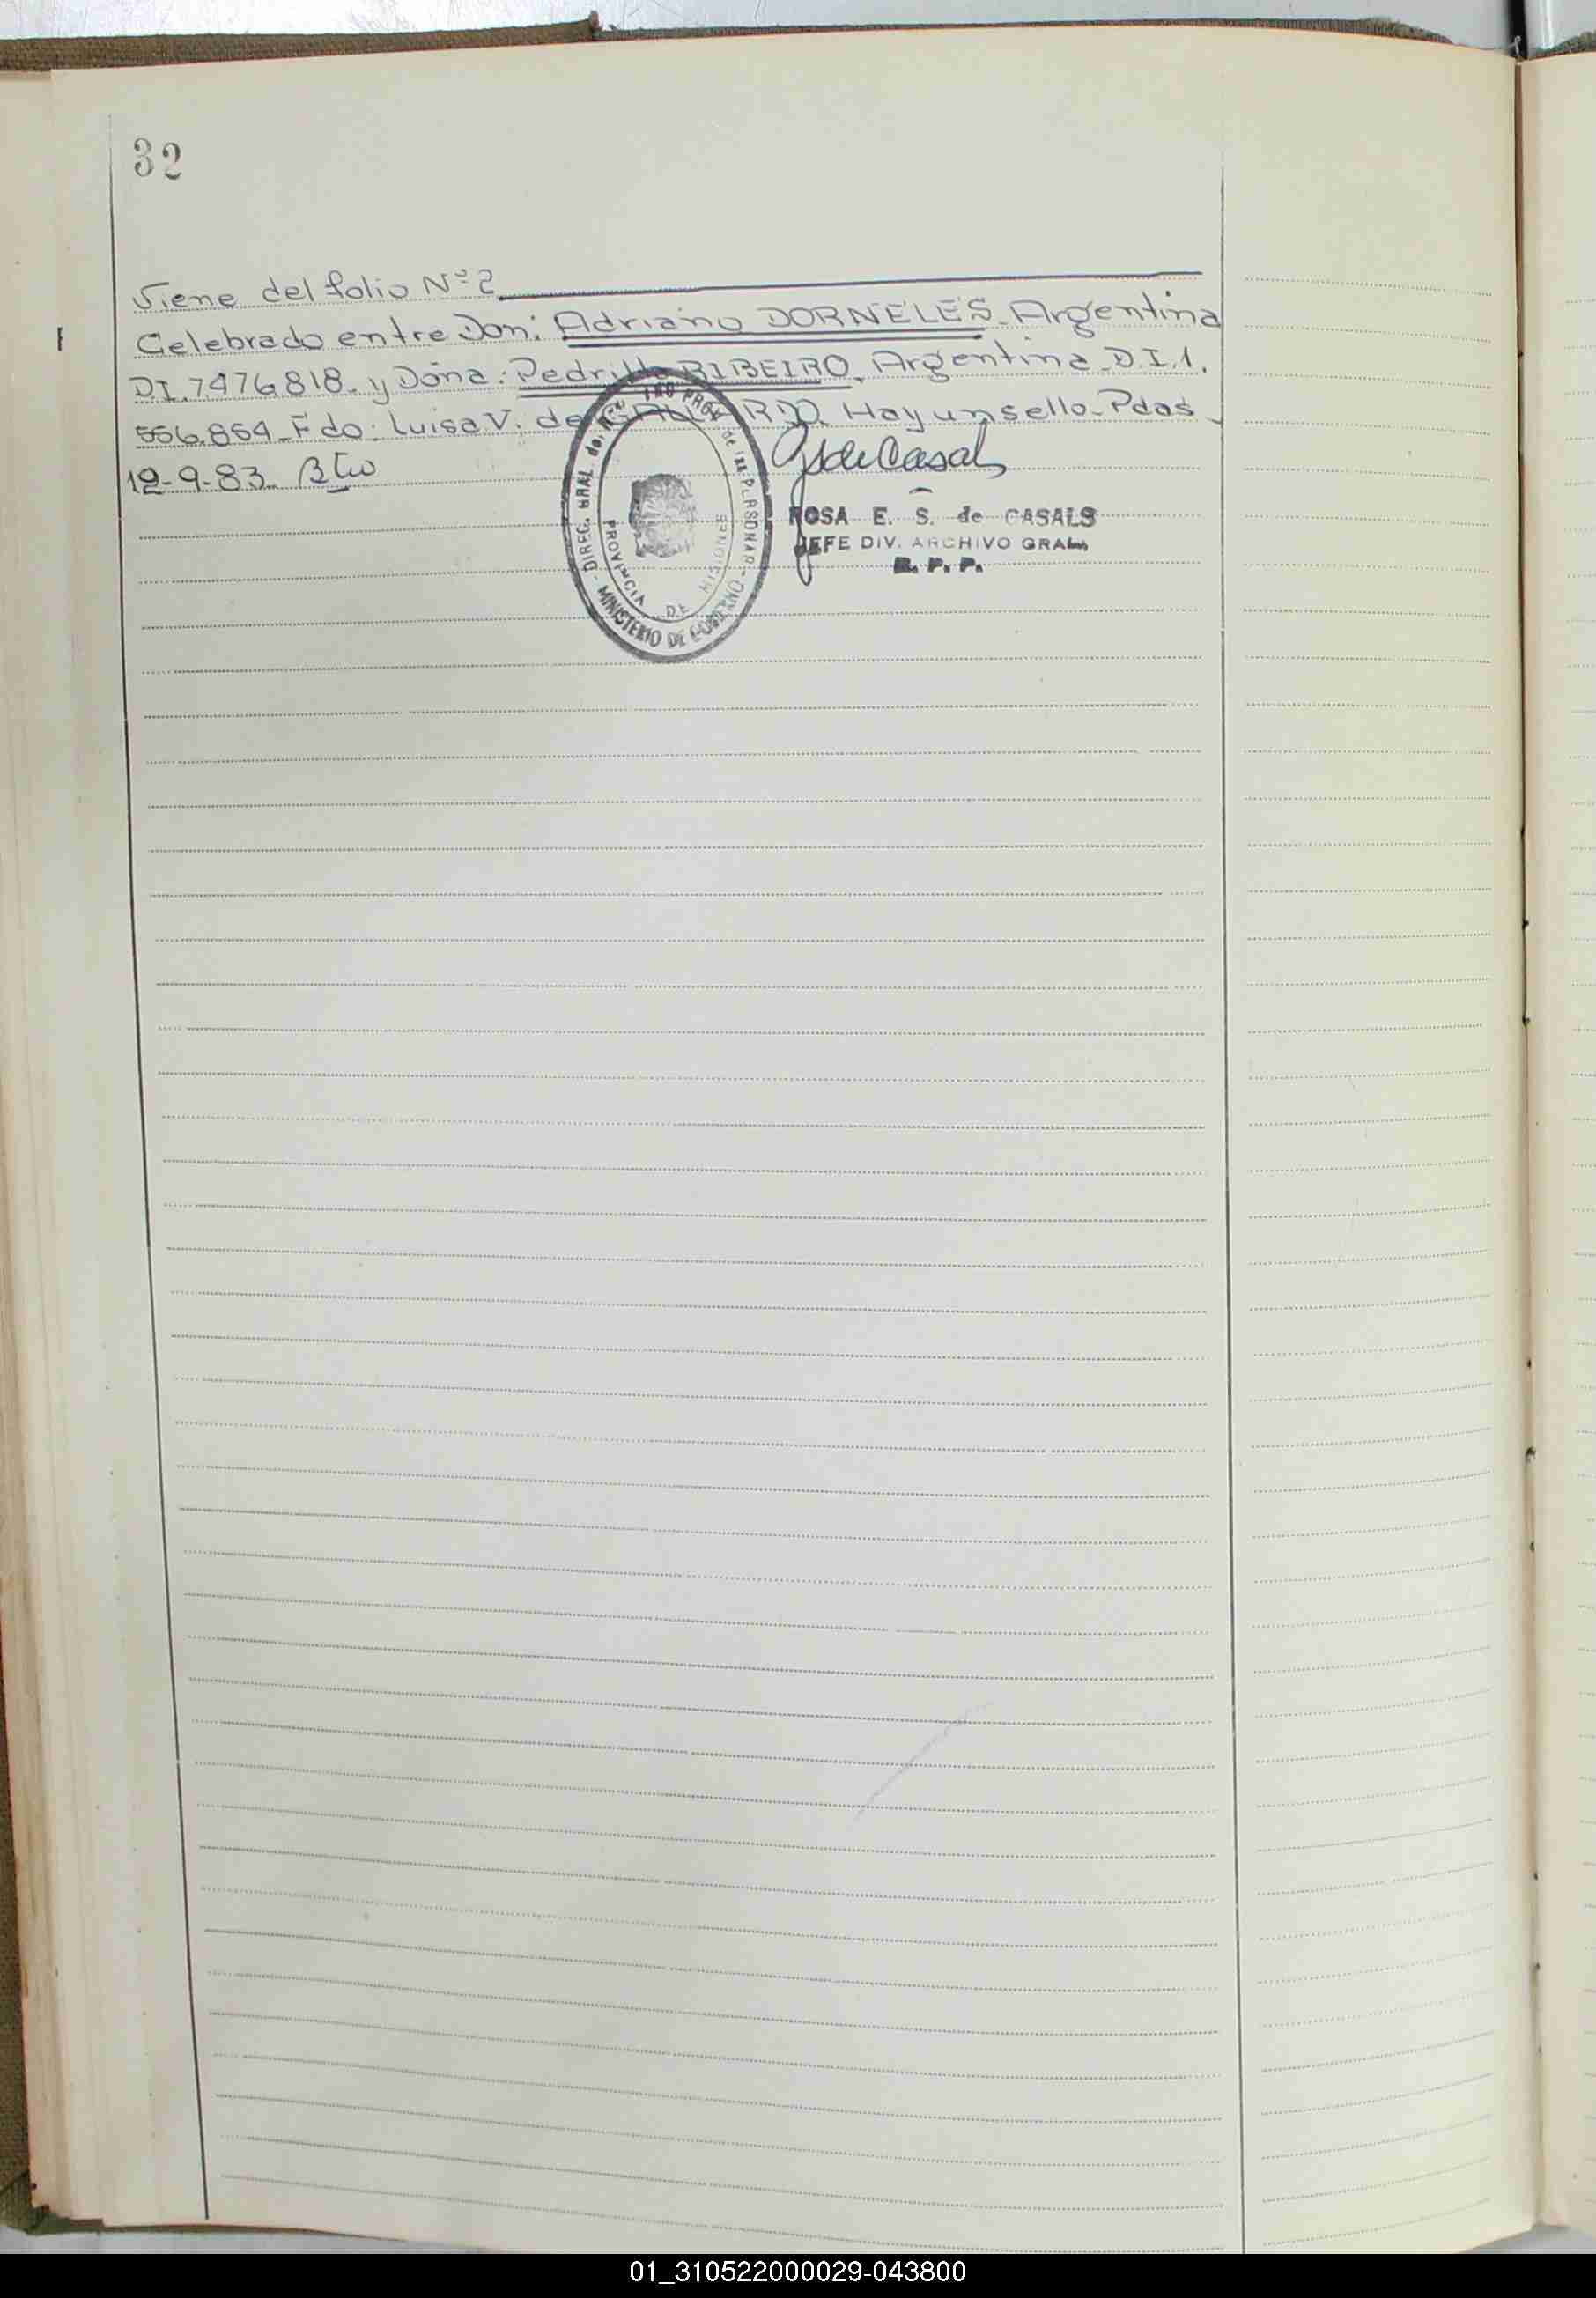 32
Viene del folio Nº 2
Celebrado entre Don: Adriano DORNELES. Argentina
DI. 7.476.818. y Doña: Pedrilla RIBEIRO. Argentina. D.I. 1.
556.854. Fdo: Luisa V. de GALLARDO. Hay un sello. Pdas
12-9-83.
DIREC. GRAL de PROV. de las PERSONAS
MINISTERIO DE GOBIERNO
PROVINCIA DE MISIONES
ROSA E. S. de CASALS
JEFE DIV. ARCHIVO GRAL.
R. P. P.
01_310522000029-043800